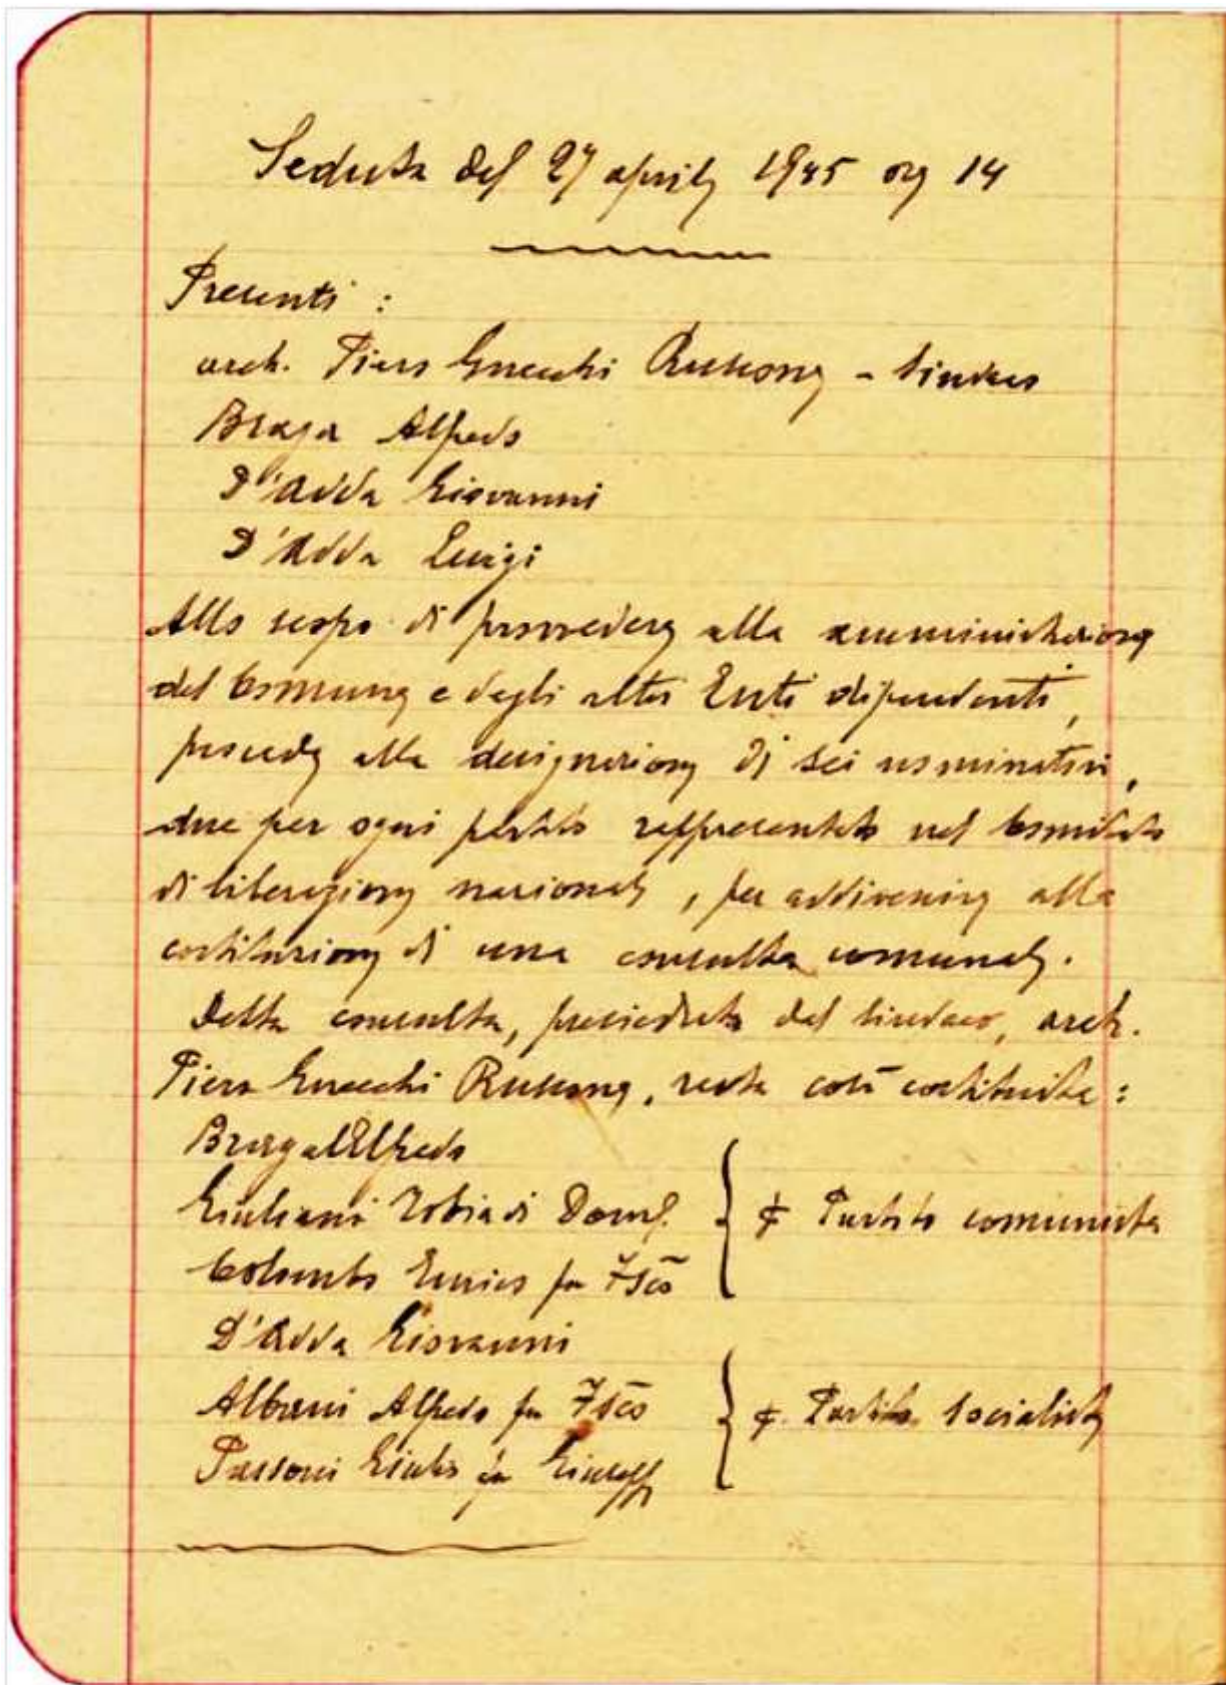 Seduta del 27 aprile 1945 ore 14
Presenti :
arch. Piero Gnecchi Ruscone - Sindaco
Braga Alfredo
D'Adda Giovanni
D'Adda Luigi
Allo scopo di provvedere alla amministrazione
del Comune e degli altri Enti dipendenti,
procede alla designazione di sei nominativi,
due per ogni partito rappresentato nel Comitato
di liberazione nazionale, per addivenire alla
costituzione di una consulta comunale.
Detta consulta, presieduta dal Sindaco, arch.
Piero Gnecchi Ruscone, resta così costituita :
Braga Alfredo
Giuliani Tobia di
Colombo Enrico fu F.sco
Partito comunista
D'Adda Giovanni
Albani Alfredo fu F.sco
Passoni Giulio fu Giuseppe
Partito Socialista